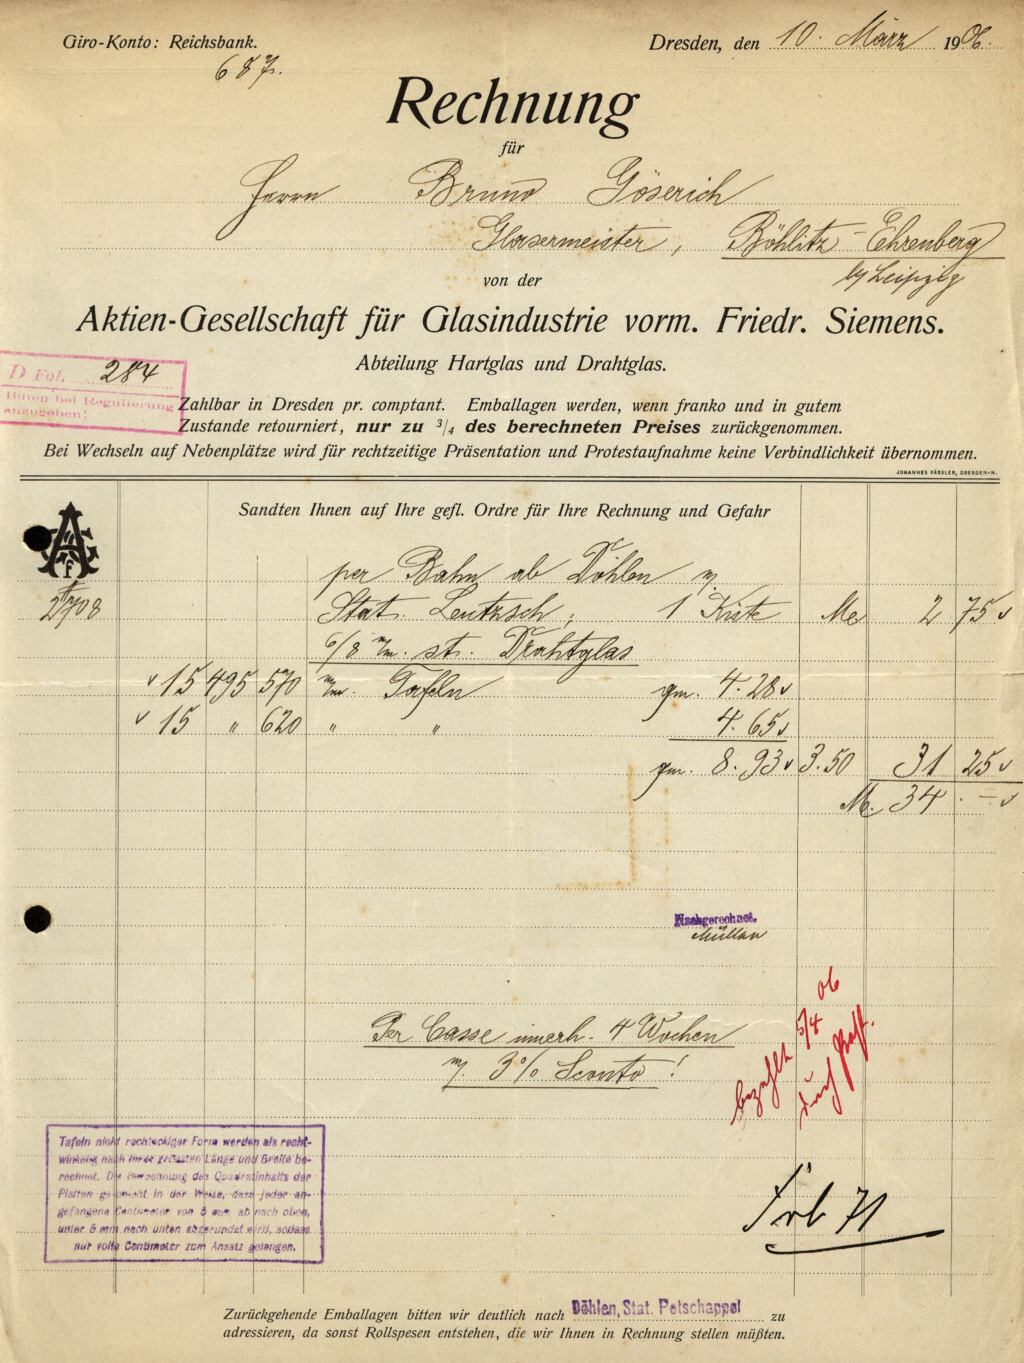 Giro-Konto: Reichsbank.
687.
Dresden, den 10. März 1906.
Rechnung
für
Herrn Bruno Göserich
Glasermeister, Böhlitz-Ehrenberg
b/Leipzig
von der
Aktien-Gesellschaft für Glasindustrie vorm. Friedr. Siemens.
Abteilung Hartglas und Drahtglas.
D Fol. 284
Bitten bei Regulierung
anzugeben!
Zahlbar in Dresden pr. comptant. Emballagen werden, wenn franko und in gutem
Zustande retourniert, nur zu 3/4 des berechneten Preises zurückgenommen.
Bei Wechseln auf Nebenplätze wird für rechtzeitige Präsentation und Protestaufnahme keine Verbindlichkeit übernommen.
JOHANNES PÄSSLER, DRESDEN-N.
Sandten Ihnen auf Ihre gefl. Ordre für Ihre Rechnung und Gefahr
per Bahn ab Döhlen n.
2708 Stat. Leutzsch; 1 Kiste M 2 75
6/8 m/m. st. Drahtglas
15 495 570 m/m. Tafeln qm. 4.28
15 " 620 " " 4.65
qm. 8.93 3.50 31 25
M. 34.—
Nachgerechnet.
Per Casse innerh. 4 Wochen
m. 3% Sconto!
bezahlt 5/4 06
durch
71
Tafeln nicht rechteckiger Form werden als recht-
winkelig nach ihrer grössten Länge und Breite be-
rechnet. Die Berechnung des Quadratinhalts der
Platten geschieht in der Weise, dass jeder an-
gefangene Centimeter von 5 mm ab nach oben,
unter 5 mm nach unten abgerundet wird, sodass
nur volle Centimeter zum Ansatz gelangen.
Zurückgehende Emballagen bitten wir deutlich nach Döhlen, Stat. Potschappel zu
adressieren, da sonst Rollspesen entstehen, die wir Ihnen in Rechnung stellen müßten.